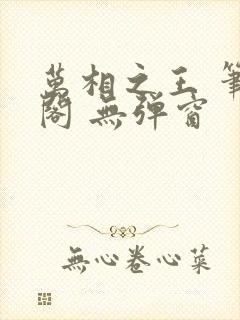 萬相之王 筆
閣 無彈窗
無心卷心菜